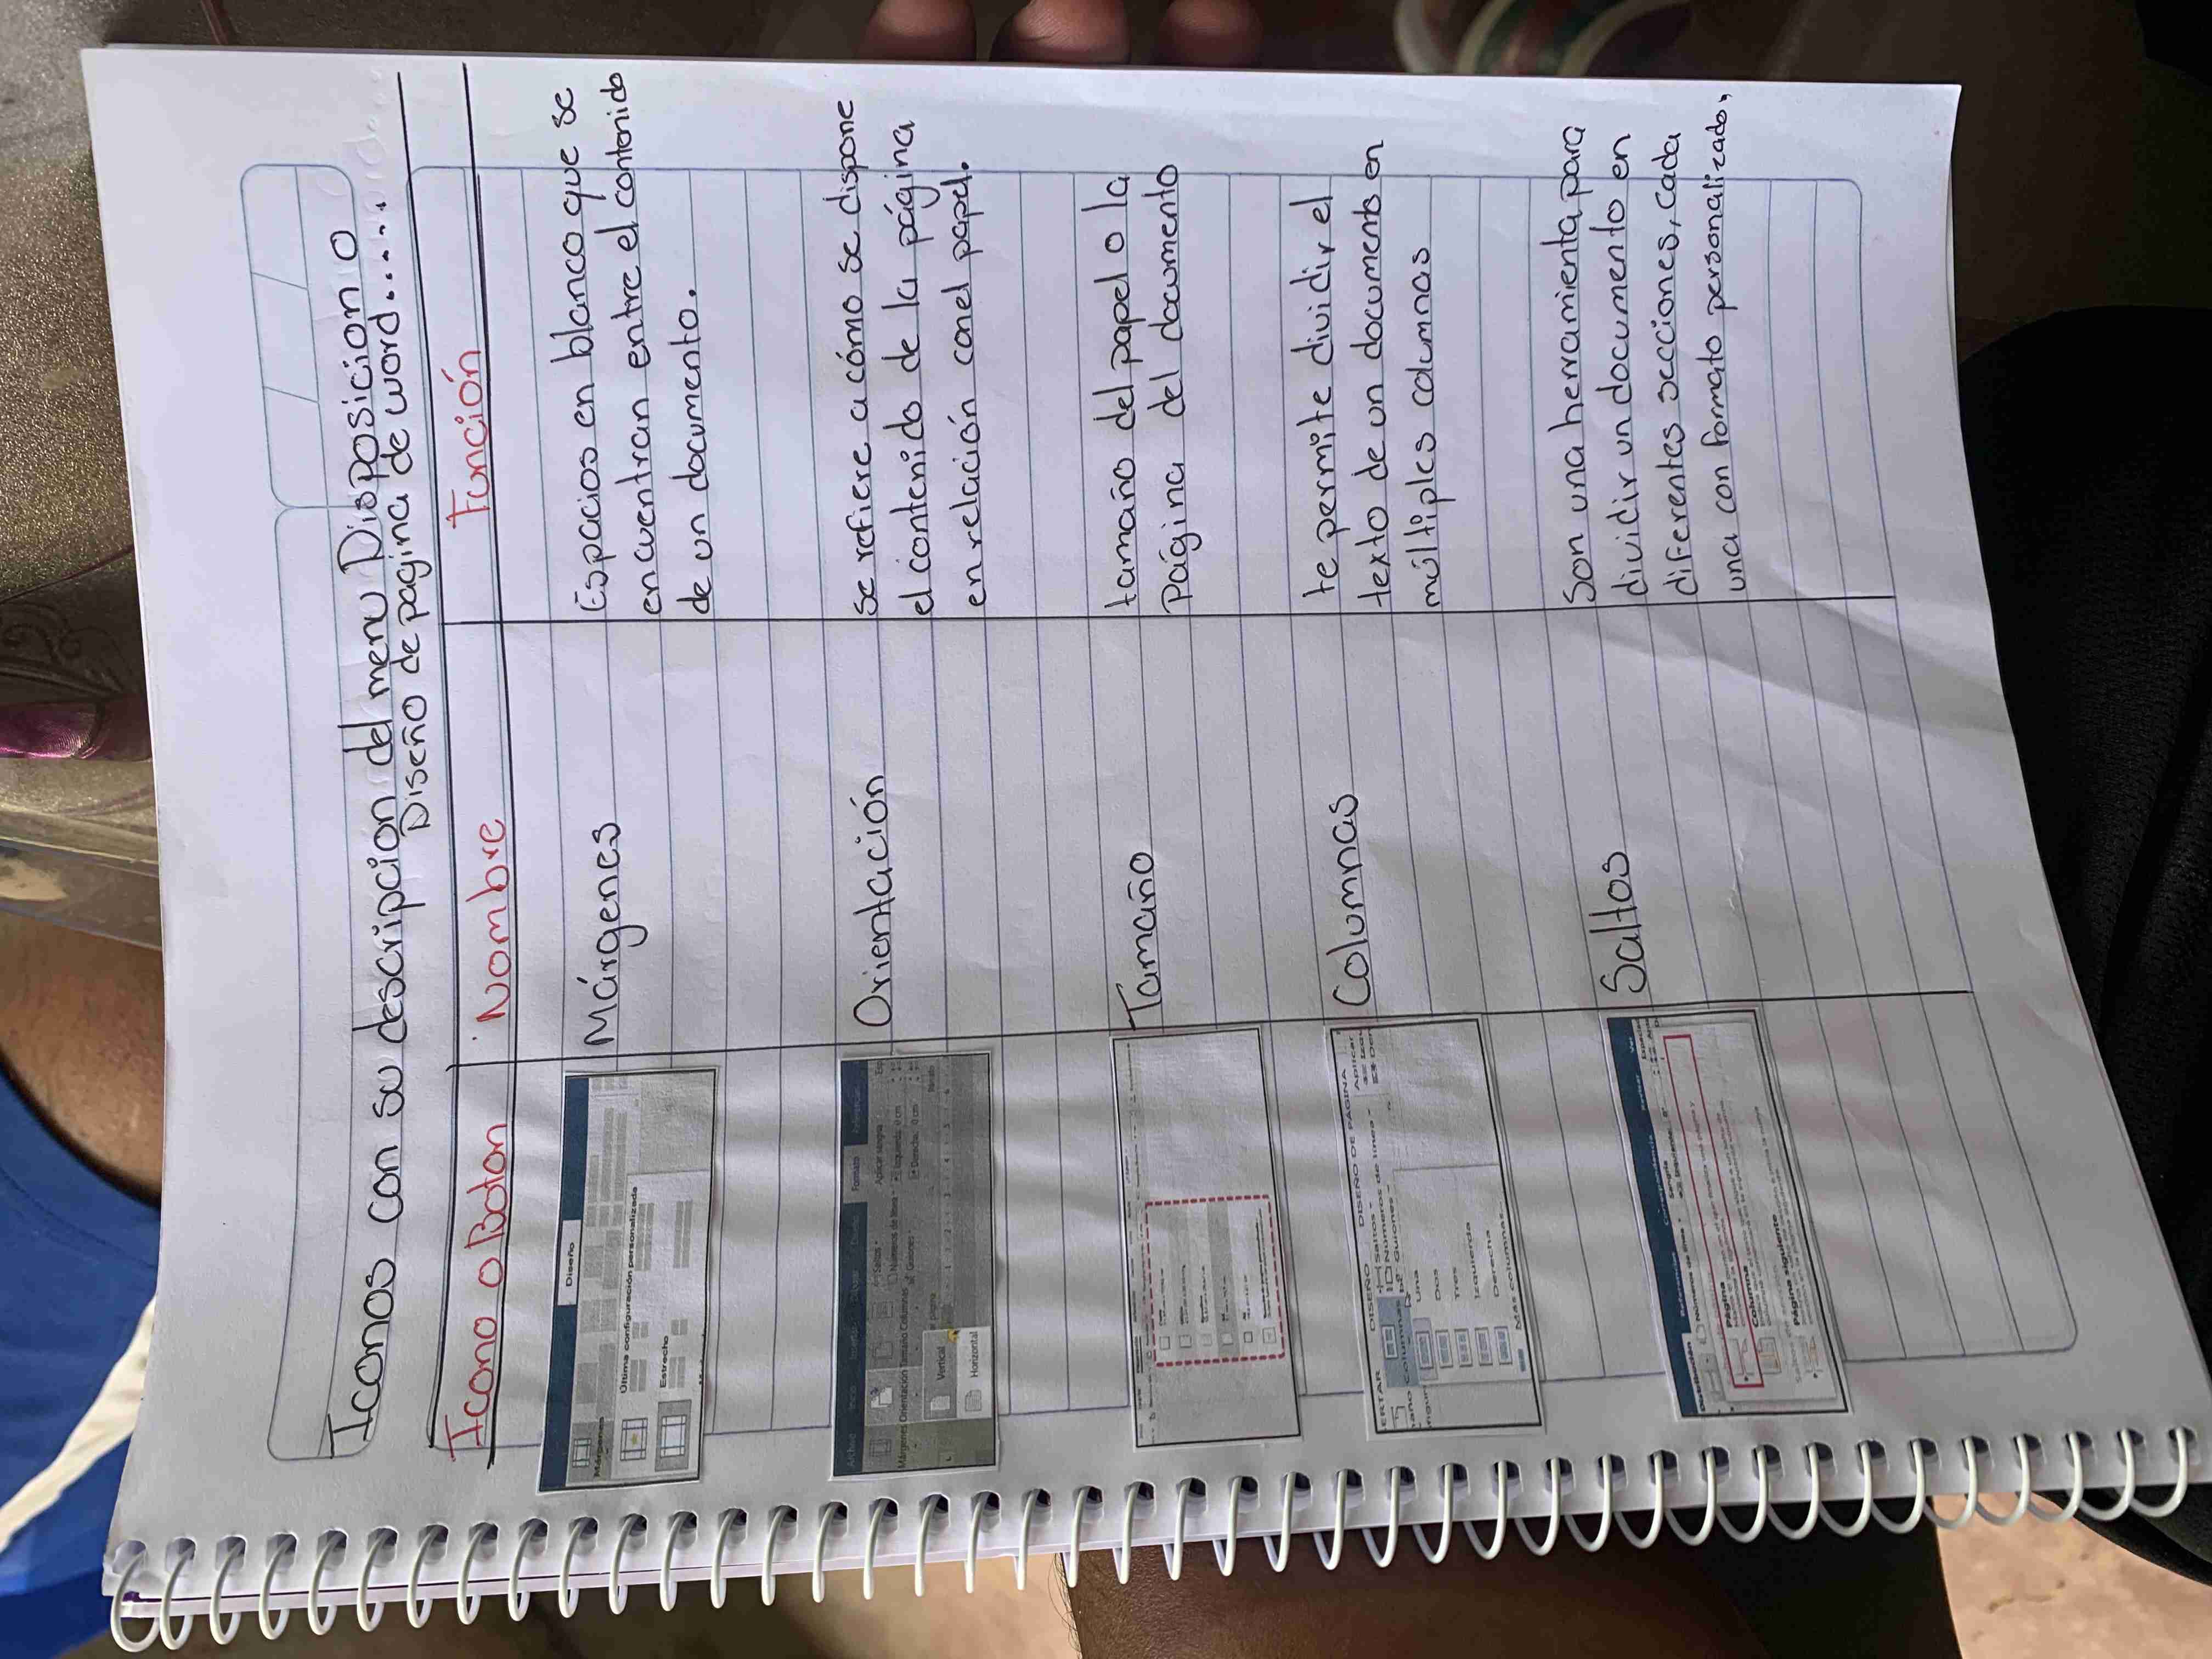 Iconos con su descripcion del menu Disposicion o
Diseño de pagina de word......
Icono o Boton Nombre Función
Diseño
Márgenes
Última configuración personalizada
Estrecho
Márgenes
Espacios en blanco que se
encuentran entre el contenido
de un documento.
Archivo
Formato
Márgenes Orientación Tamaño Columnas
Saltos
Números de línea
Guiones
Aplicar sangría
Izquierda: 0 cm
Derecha: 0 cm
Vertical
Horizontal
Orientación
se refiere a cómo se dispone
el contenido de la página
en relación con el papel.
Tamaño
tamaño del papel o la
Página del documento
ERTAR DISEÑO DISEÑO DE PÁGINA
Saltos
Números de línea
Guiones
Aplicar
Columnas
Una
Dos
Tres
Izquierda
Derecha
Más columnas...
Columnas
te permite dividir el
texto de un documento en
múltiples columnas
Página
Columna
Página siguiente
Saltos
Son una herramienta para
dividir un documento en
diferentes secciones, cada
una con formato personalizado,